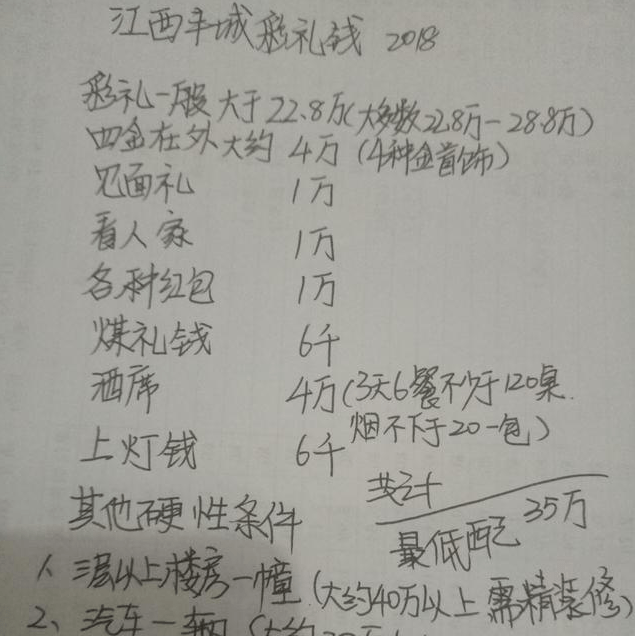 江西丰城彩礼钱 2018
彩礼一般大于22.8万(大多数22.8万-28.8万)
四金在外大约 4万(4种金首饰)
见面礼 1万
看人家 1万
各种红包 1万
煤礼钱 6千
酒席 4万(3天6餐不少于120桌.
烟不下于20一包)
上灯钱 6千
共计 35万
最低配
其他硬性条件
1、三层以上楼房一幢(大约40万以上需精装修)
2、汽车一辆(大约